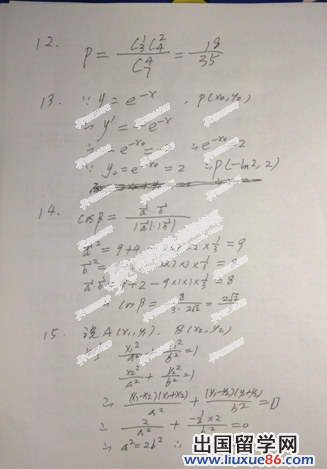 12. P = C₃¹C₄² / C₇⁴ = 18/35
13. ∵ y = e^-x , P(x₀, y₀)
∴ y' = -e^-x
∴ -e^-x₀ = -2 ∴ e^-x₀ = 2
∴ y₀ = e^-x₀ = 2 ∴ P(-ln2, 2)
14. cosβ = a·b / |a|·|b|
a² = 9+4-2×3×2×1/3 = 9
b² = 1/3 = 8
a·b = 9+2-9×1×1×1/3 = 8
∴ cosβ = 8/(3·2√2) = 2√2/3
15. 设 A(x₁, y₁). B(x₂, y₂)
x₁²/a² + y₁²/b² = 1
x₂²/a² + y₂²/b² = 1
∴ (x₁-x₂)(x₁+x₂)/a² + (y₁-y₂)(y₁+y₂)/b² = 0
∴ 2/a² + (-1/2×2)/b² = 0
∴ a² = 2b² ∴
出国留学网
www.liuxue86.com